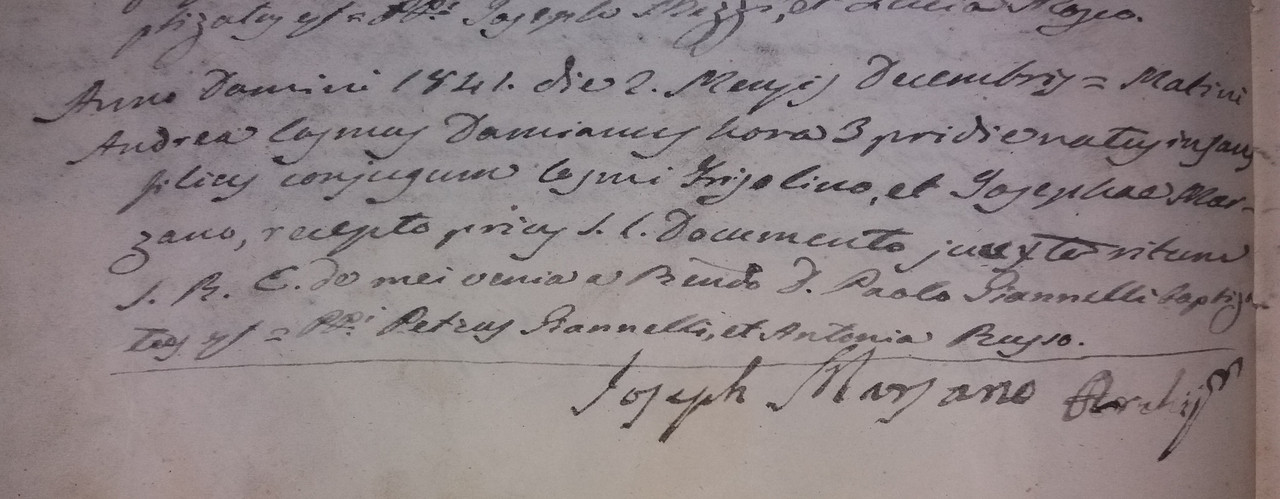 ptizatus est = PPni Joseph Mezzi, et Lucia Mayo.
Anno Domini 1841. die 2. Mensis Decembris = Matini
Andrea Cosmus Damianus hora 3 pridie natus infans
filius conjugum Cosmi Frisolino, et Josephae Mar-
zano, recepto prius S. C. Documento juxta ritum
S. R. E. de mei venia a Rendo D. Paolo Giannelli baptiza-
tus est = PPni Petrus Giannelli, et Antonia Russo.
Joseph Marzano Archips